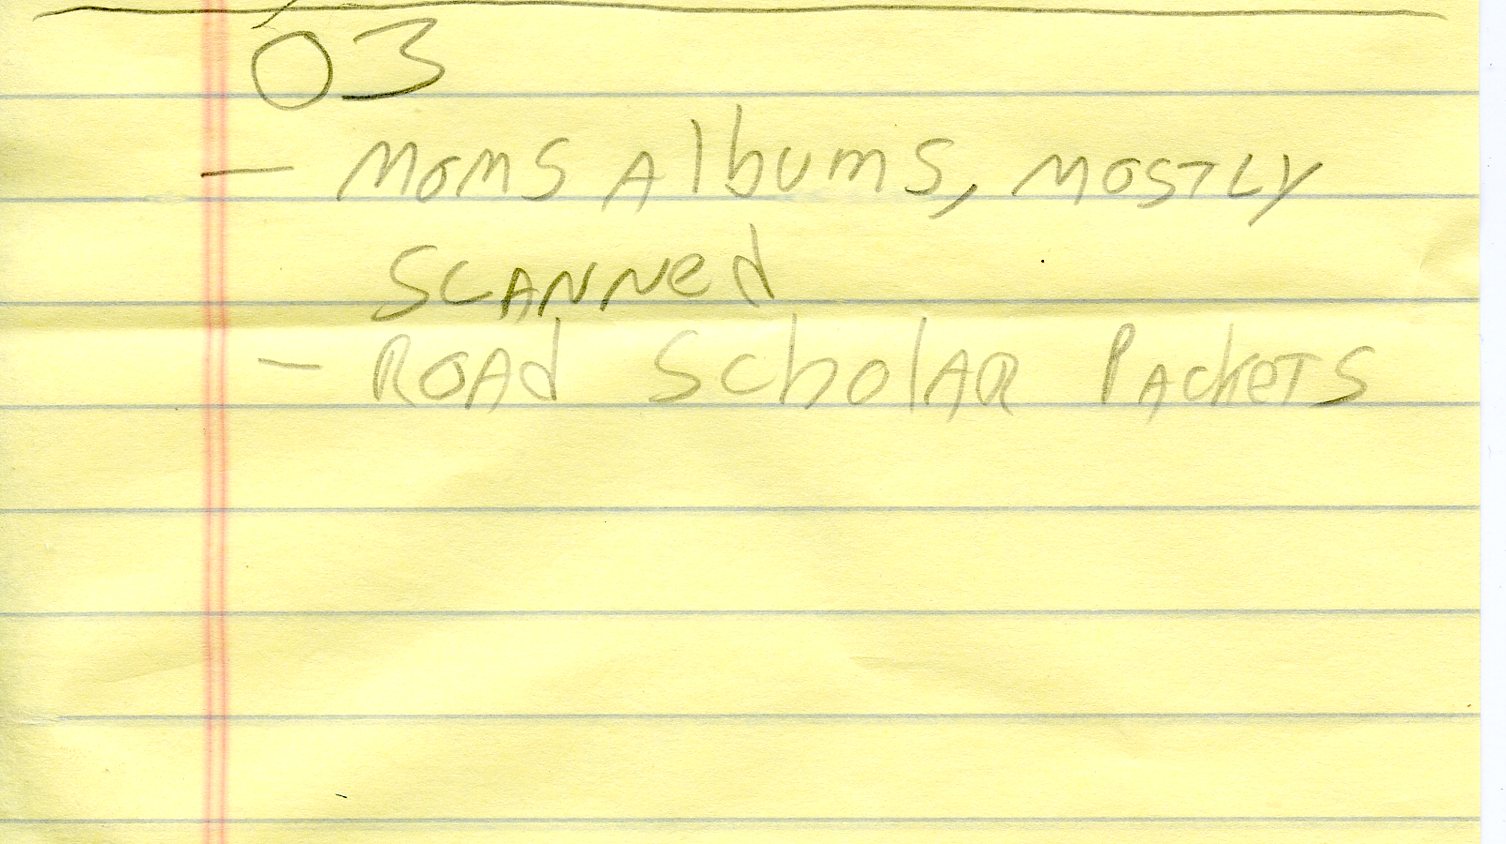 03
- Moms Albums, mostly
scanned
- Road Scholar Packets